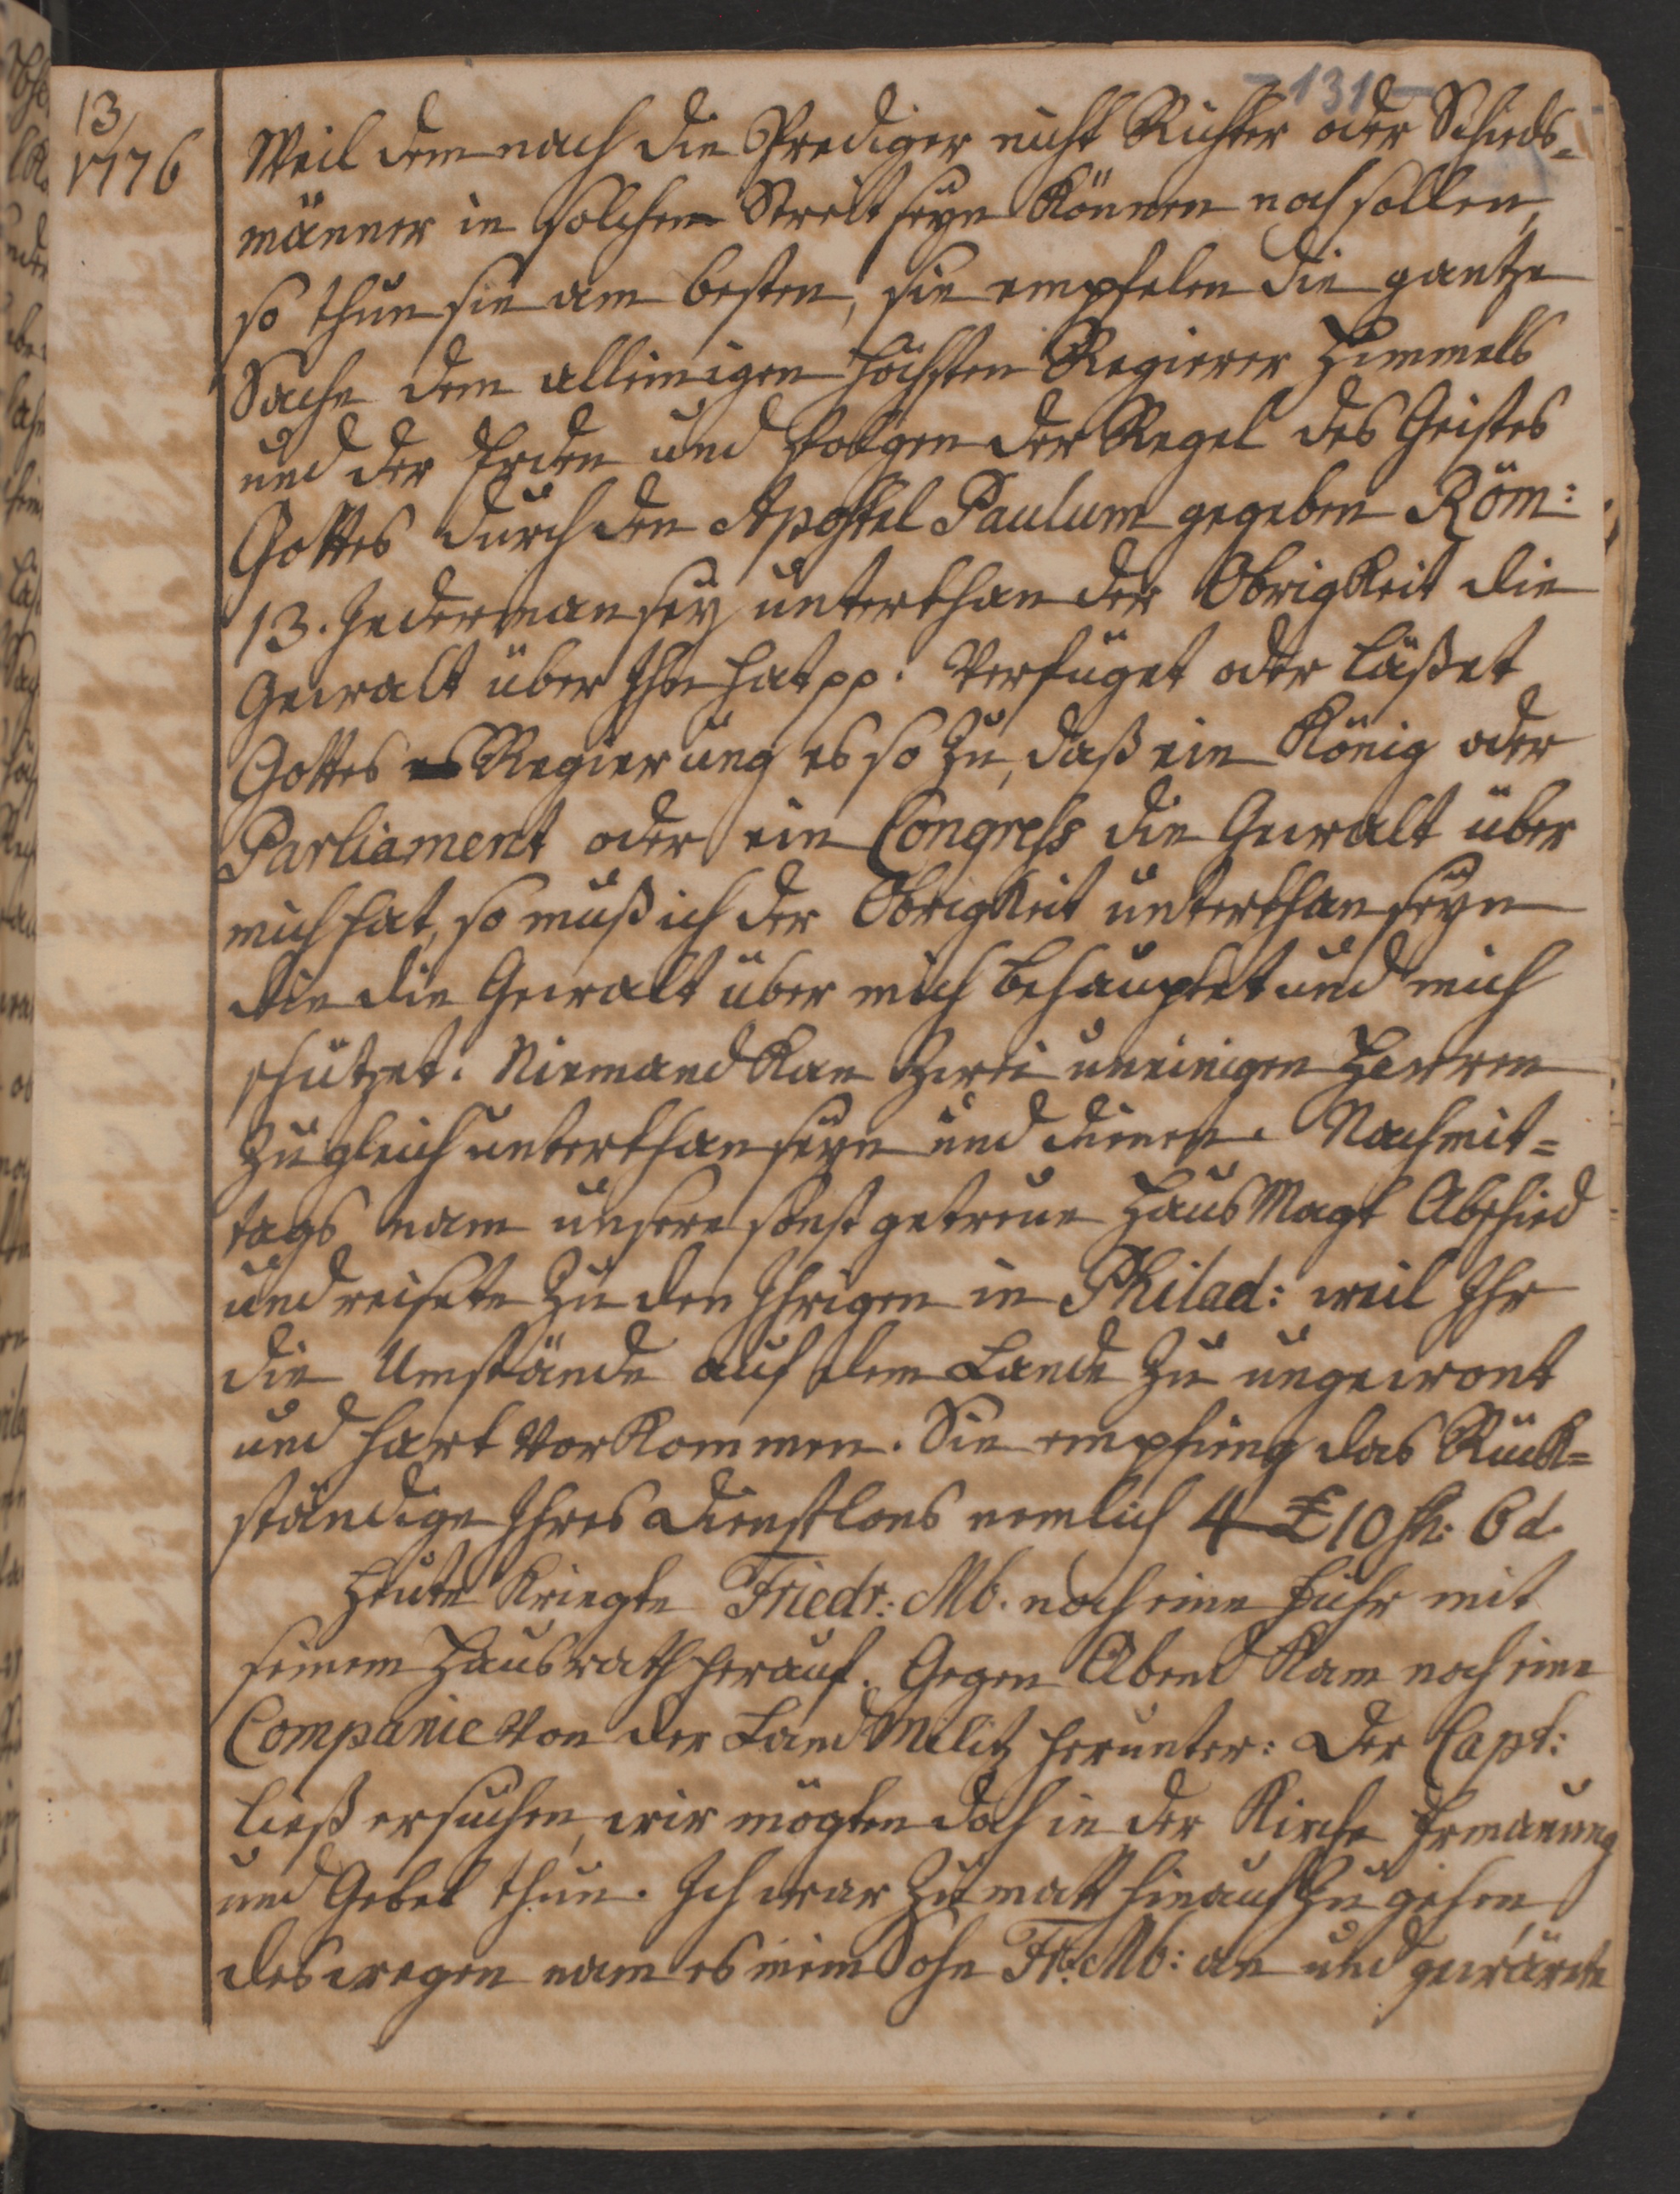 - 131 -
13/
1776
Weil dem nach die Prediger nicht Richter oder Schieds=
männer in solchem Streit seyn können noch sollen,
so thun sie am besten, sie empfelen die gantze
Sache dem alleinigen höchsten Regierer Himmels
und der Erden und folgen der Regel des Geistes
Gottes durch den Apostel Paulum gegeben Röm:
13. Jederman sey unterthan der Obrigkeit die
Gewalt über Ihn hat pp. Verfüget oder läßet
Gottes Regierung es so zu, daß ein König oder
Parliament oder ein Congress die Gewalt über
mich hat, so muß ich der Obrigkeit unterthan seyn
die die Gewalt über mich behauptet und mich
schützet. Niemand kan zwei uneinigen Herren
zugleich unterthan seyn und dienen. Nachmit=
tags nam unsere sonst getreue Haus Magt Abschied
und reisete zu den Ihrigen in Philad: weil Ihr
die Umstände auf dem Lande zu ungewont
und hart vorkommen. Sie empfieng das Rück=
ständige Ihres Dienstlons nemlich 4 £ 10 sh: 6 d.
Heute kriegte Friedr: Mb. noch eine Fuhr mit
seinem Hausrath herauf. Gegen Abend kam noch eine
Companie von der Land Militz herunter: Der Capt:
ließ ersuchen, wir mögten doch in der Kirche Ermanung
und Gebet thun. Ich war zu matt hinauf zu gehen,
deswegen nam es mein Sohn Fr: Mb: an und gewärete